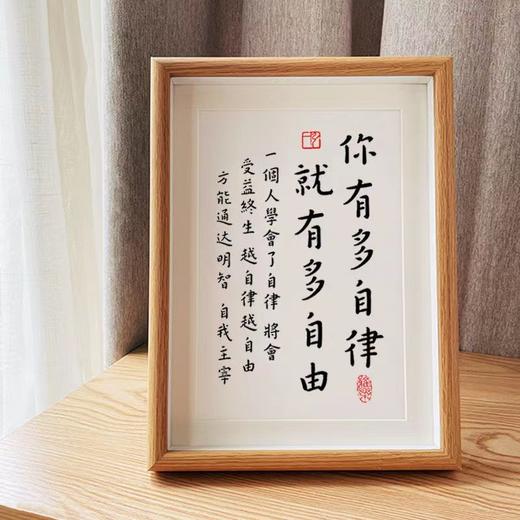 你有多自律
就有多自由
一個人學會了自律 將會
受益終生 越自律越自由
方能通达明智 自我主宰